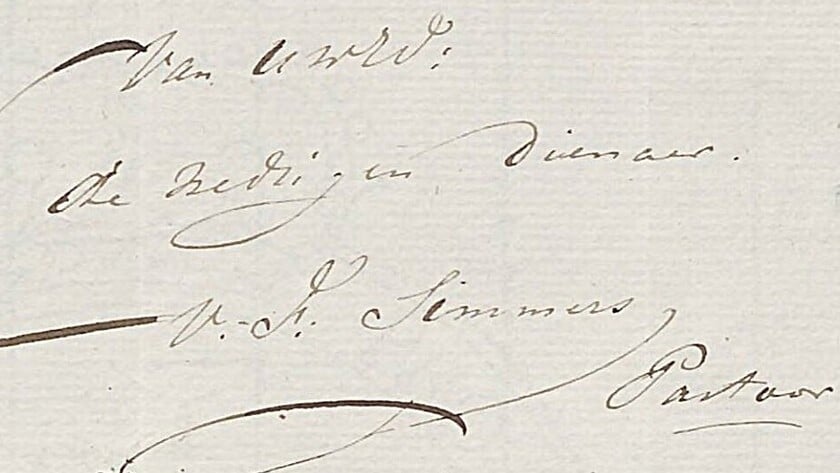 Van UWEd:
de nedrigen Dienaer.
V. F. Simmers
Pastoor